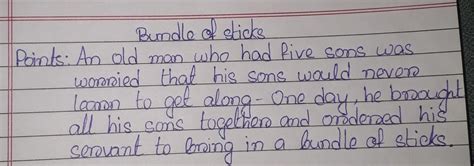 Bundle of sticks
Points: An old man who had five sons was
worried that his sons would never
learn to get along - One day, he brought
all his sons together and ordered his
servant to bring in a bundle of sticks.